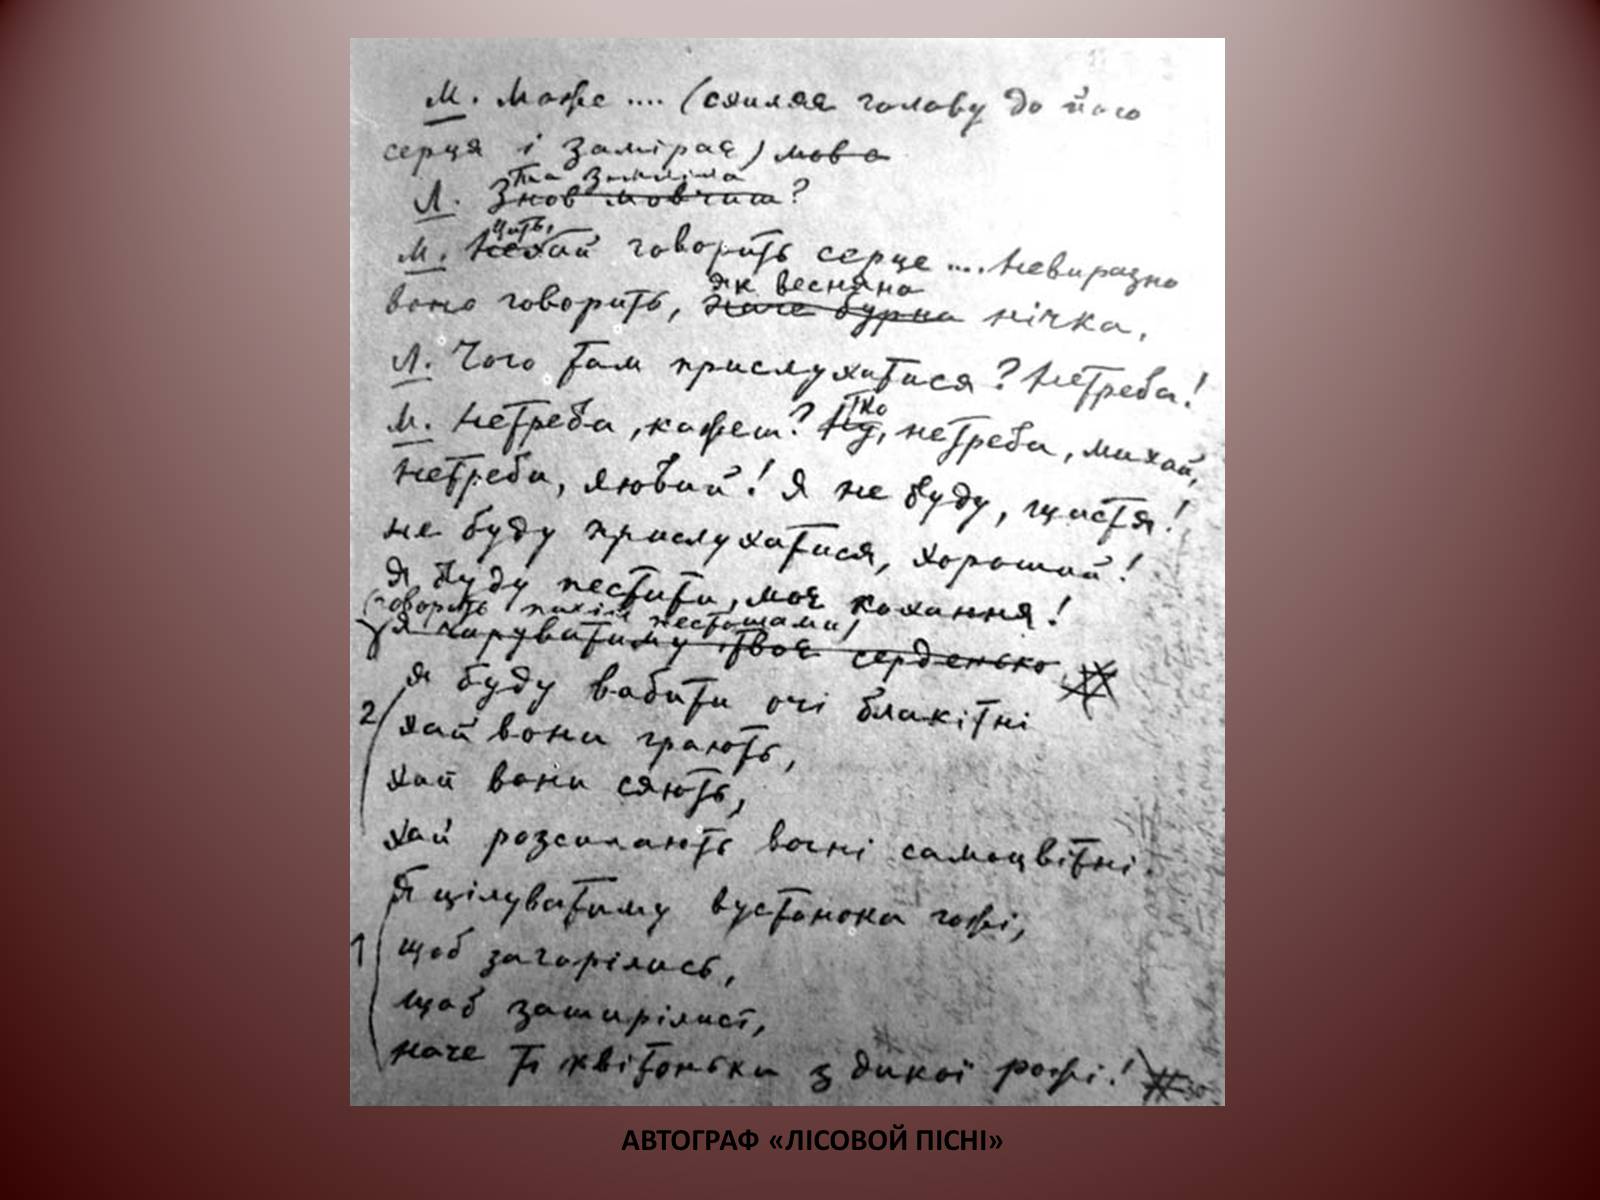 М. Може .... (схиляє голову до його
серця і заміряє) мов а
та заніміла
Л. Знов мовчиш?
Цить,
М. Нехай говорить серце .... Невиразно
як весняна
воно говорить, наче бурна нічка.
Л. Чого там прислухатися? Нетреба!
М. Нетреба, кажеш? Тко Ну, нетреба, милий,
нетреба, любий! Я не буду, щастя!
не буду прислухатися, хороший!
Я буду пестити, моє кохання!
(говорить тихим пестощами)
Я чаруватиму твоє серденько
Я буду вабити очі блакітні
2
хай вони грають,
хай вони сяють,
хай розсипають вогні самоцвітні.
Я цілуватиму вустонока гожі,
1
щоб загорілись,
щоб зашарілись,
наче ті квітоньки з дикої рожі!
АВТОГРАФ «ЛІСОВОЙ ПІСНІ»